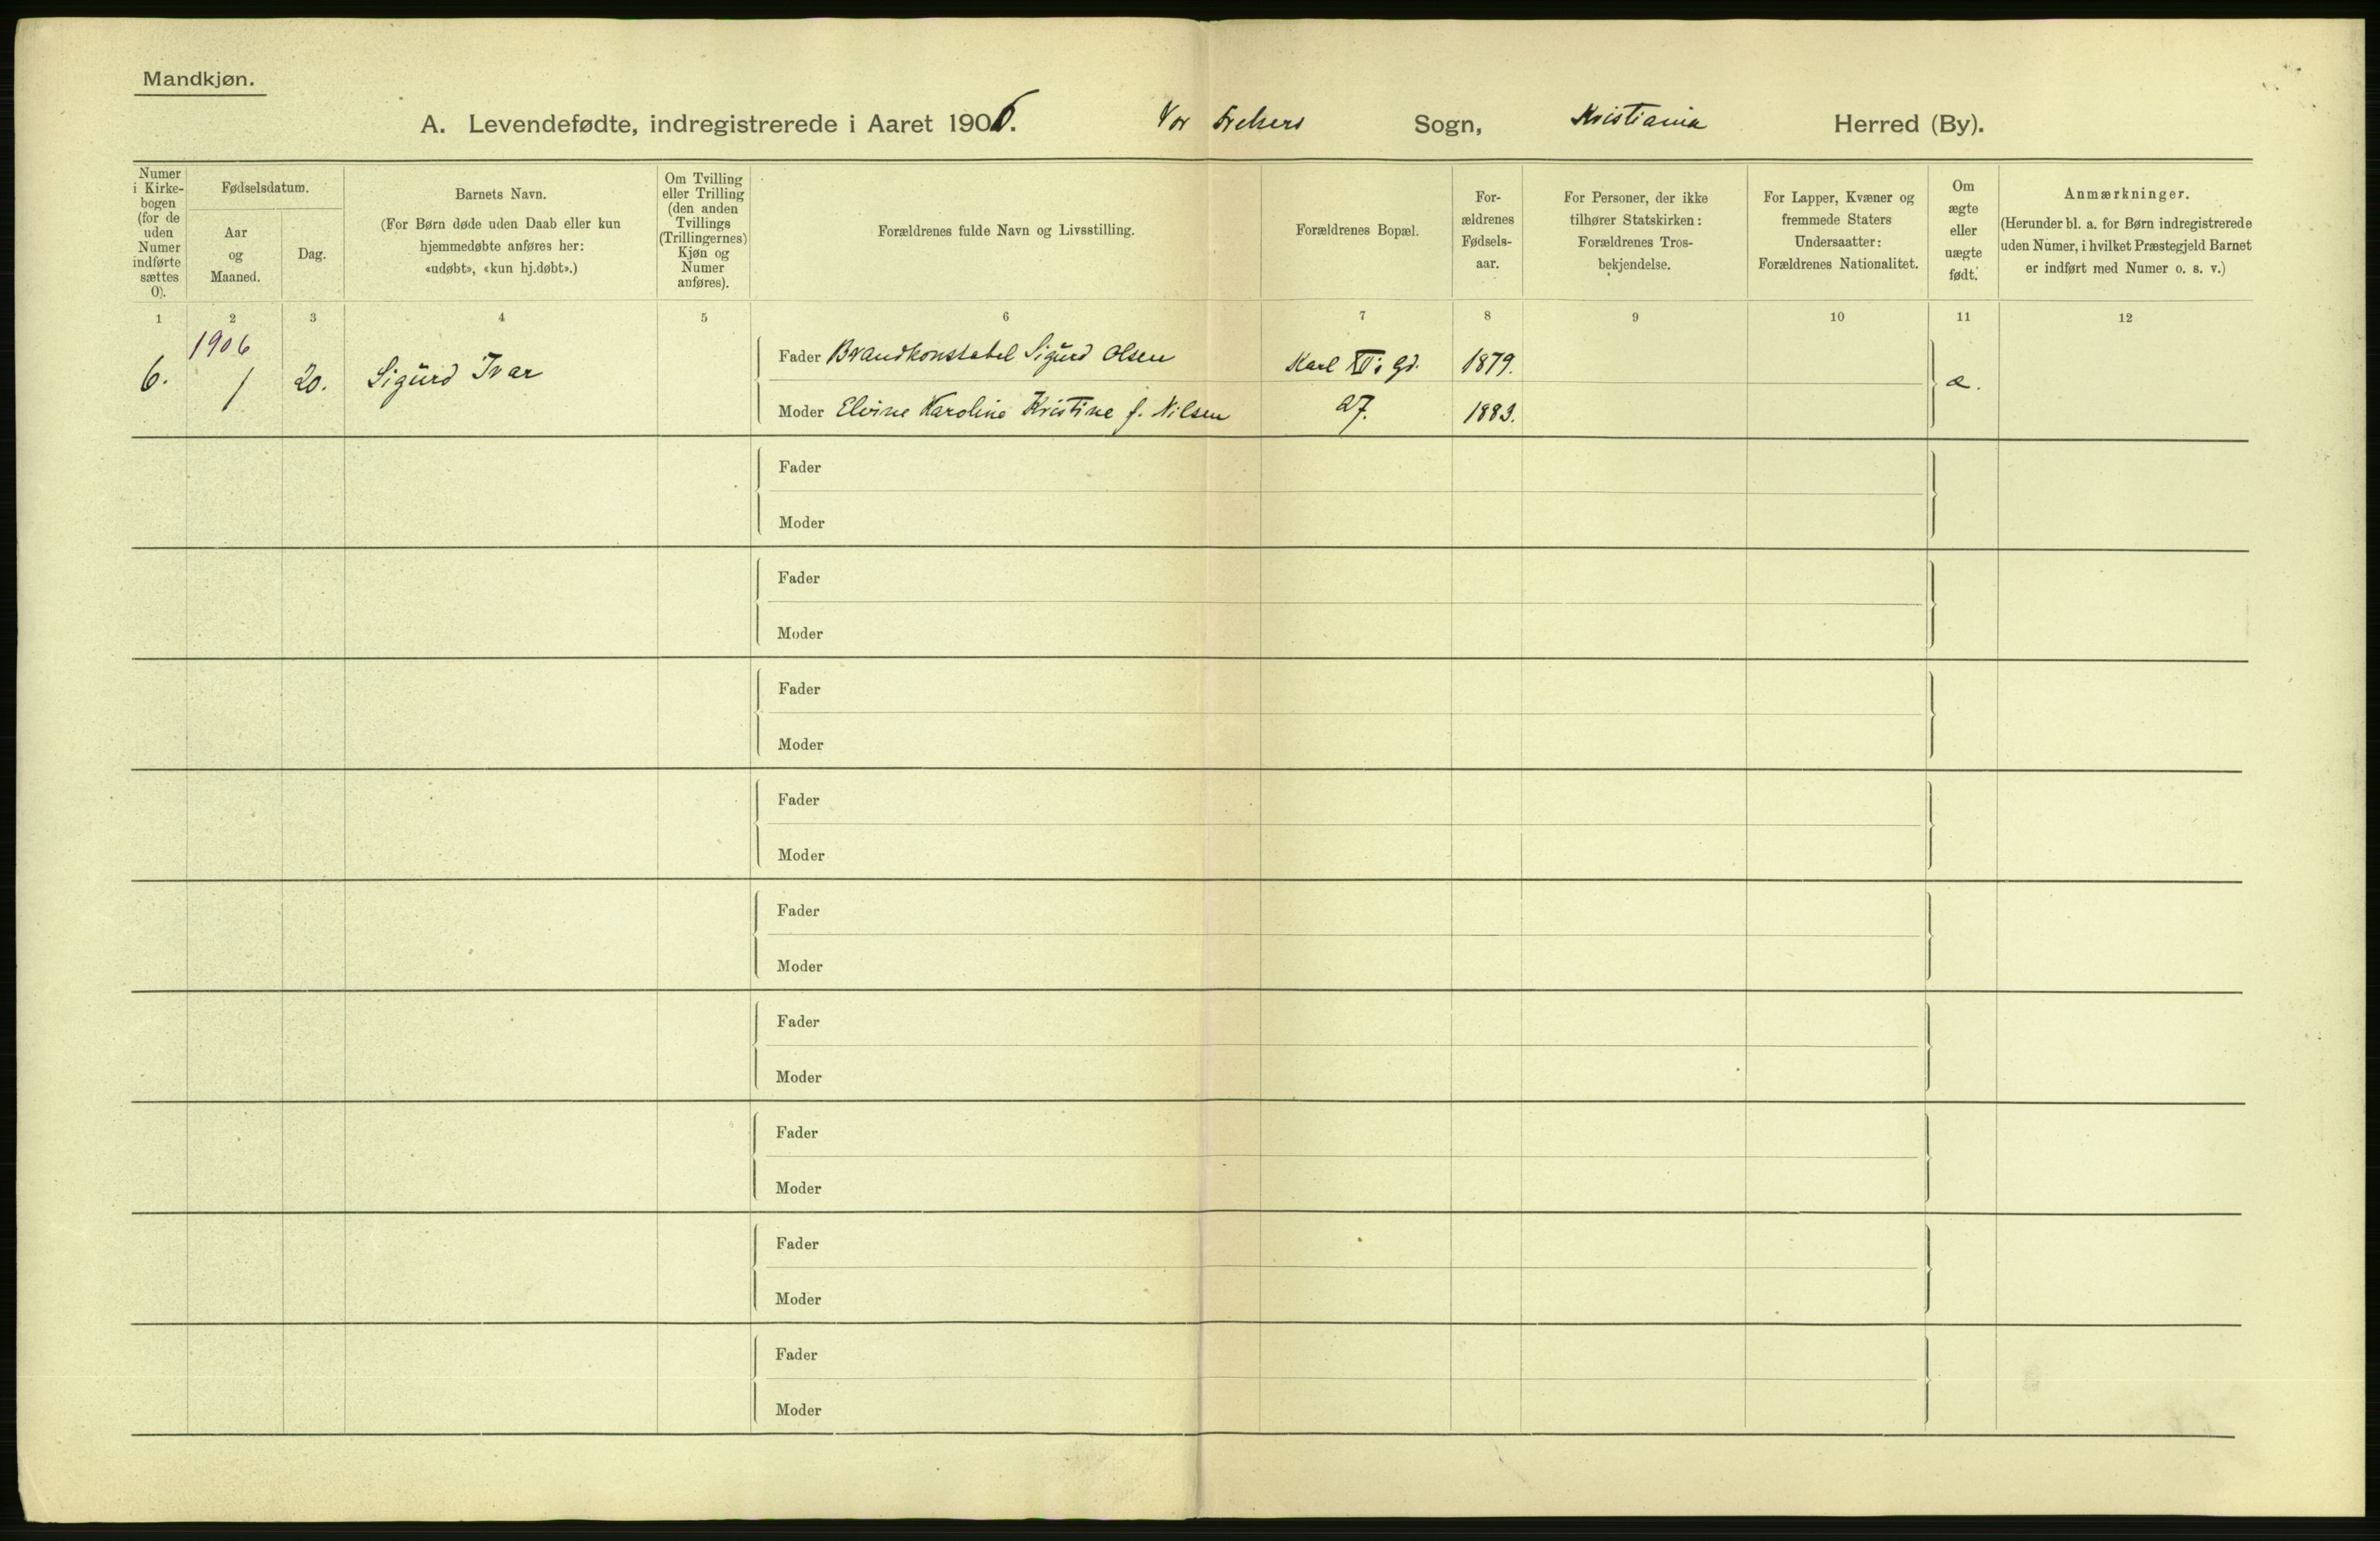 Mandkjøn.
A. Levendefødte, indregistrerede i Aaret 1906. Vor Frelsers Sogn, Kristiania Herred (By).
Numer
i Kirke-
bogen
(for de
uden
Numer
indførte
sættes
0).
Fødselsdatum.
Aar
og
Maaned.
Dag.
Barnets Navn.
(For Børn døde uden Daab eller kun
hjemmedøbte anføres her:
«udøbt», «kun hj.døbt».)
Om Tvilling
eller Trilling
(den anden
Tvillings
(Trillingernes)
Kjøn og
Numer
anføres).
Forældrenes fulde Navn og Livsstilling.
Forældrenes Bopæl.
For-
ældrenes
Fødsels-
aar.
For Personer, der ikke
tilhører Statskirken:
Forældrenes Tros-
bekjendelse.
For Lapper, Kvæner og
fremmede Staters
Undersaatter:
Forældrenes Nationalitet.
Om
ægte
eller
uægte
født.
Anmærkninger.
(Herunder bl. a. for Børn indregistrerede
uden Numer, i hvilket Præstegjeld Barnet
er indført med Numer o. s. v.)
1 2 3 4 5 6 7 8 9 10 11 12
1906
6. 1 20. Sigurd Ivar
Fader Brandkonstabel Sigurd Olsen Karl XII: gd. 1879.
Moder Elvine Karoline Kristine f. Nilsen 27. 1883.
æ.
Fader
Moder
Fader
Moder
Fader
Moder
Fader
Moder
Fader
Moder
Fader
Moder
Fader
Moder
Fader
Moder
Fader
Moder